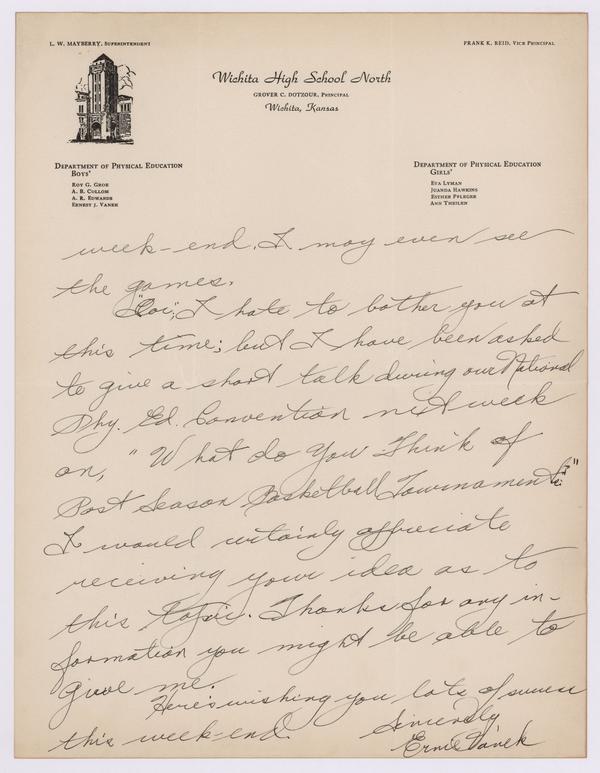 L. W. MAYBERRY, SUPERINTENDENT
FRANK K. REID, VICE PRINCIPAL
Wichita High School North
GROVER C. DOTZOUR, PRINCIPAL
Wichita, Kansas
DEPARTMENT OF PHYSICAL EDUCATION
BOYS'
ROY G. GROE
A. B. COLLOM
A. R. EDWARDS
ERNEST J. VANEK
DEPARTMENT OF PHYSICAL EDUCATION
GIRLS'
EVA LYMAN
JUANDA HAWKINS
ESTHER PFLEGER
ANN THEILEN
week-end. I may even see
the games.
I hate to bother you at
this time; but I have been asked
to give a short talk during our National
Phy. Ed. Convention next week
on, "What do You Think of
Post Season Basketball Tournaments?"
I would certainly appreciate
receiving your idea as to
this topic. Thanks for any in-
formation you might be able to
give me.
Here's wishing you lots of success
this week-end.
Sincerely
Ernie Vanek